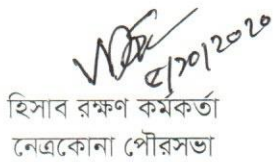 ৫/১০/২০২০
হিসাব রক্ষণ কর্মকর্তা
নেত্রকোনা পৌরসভা